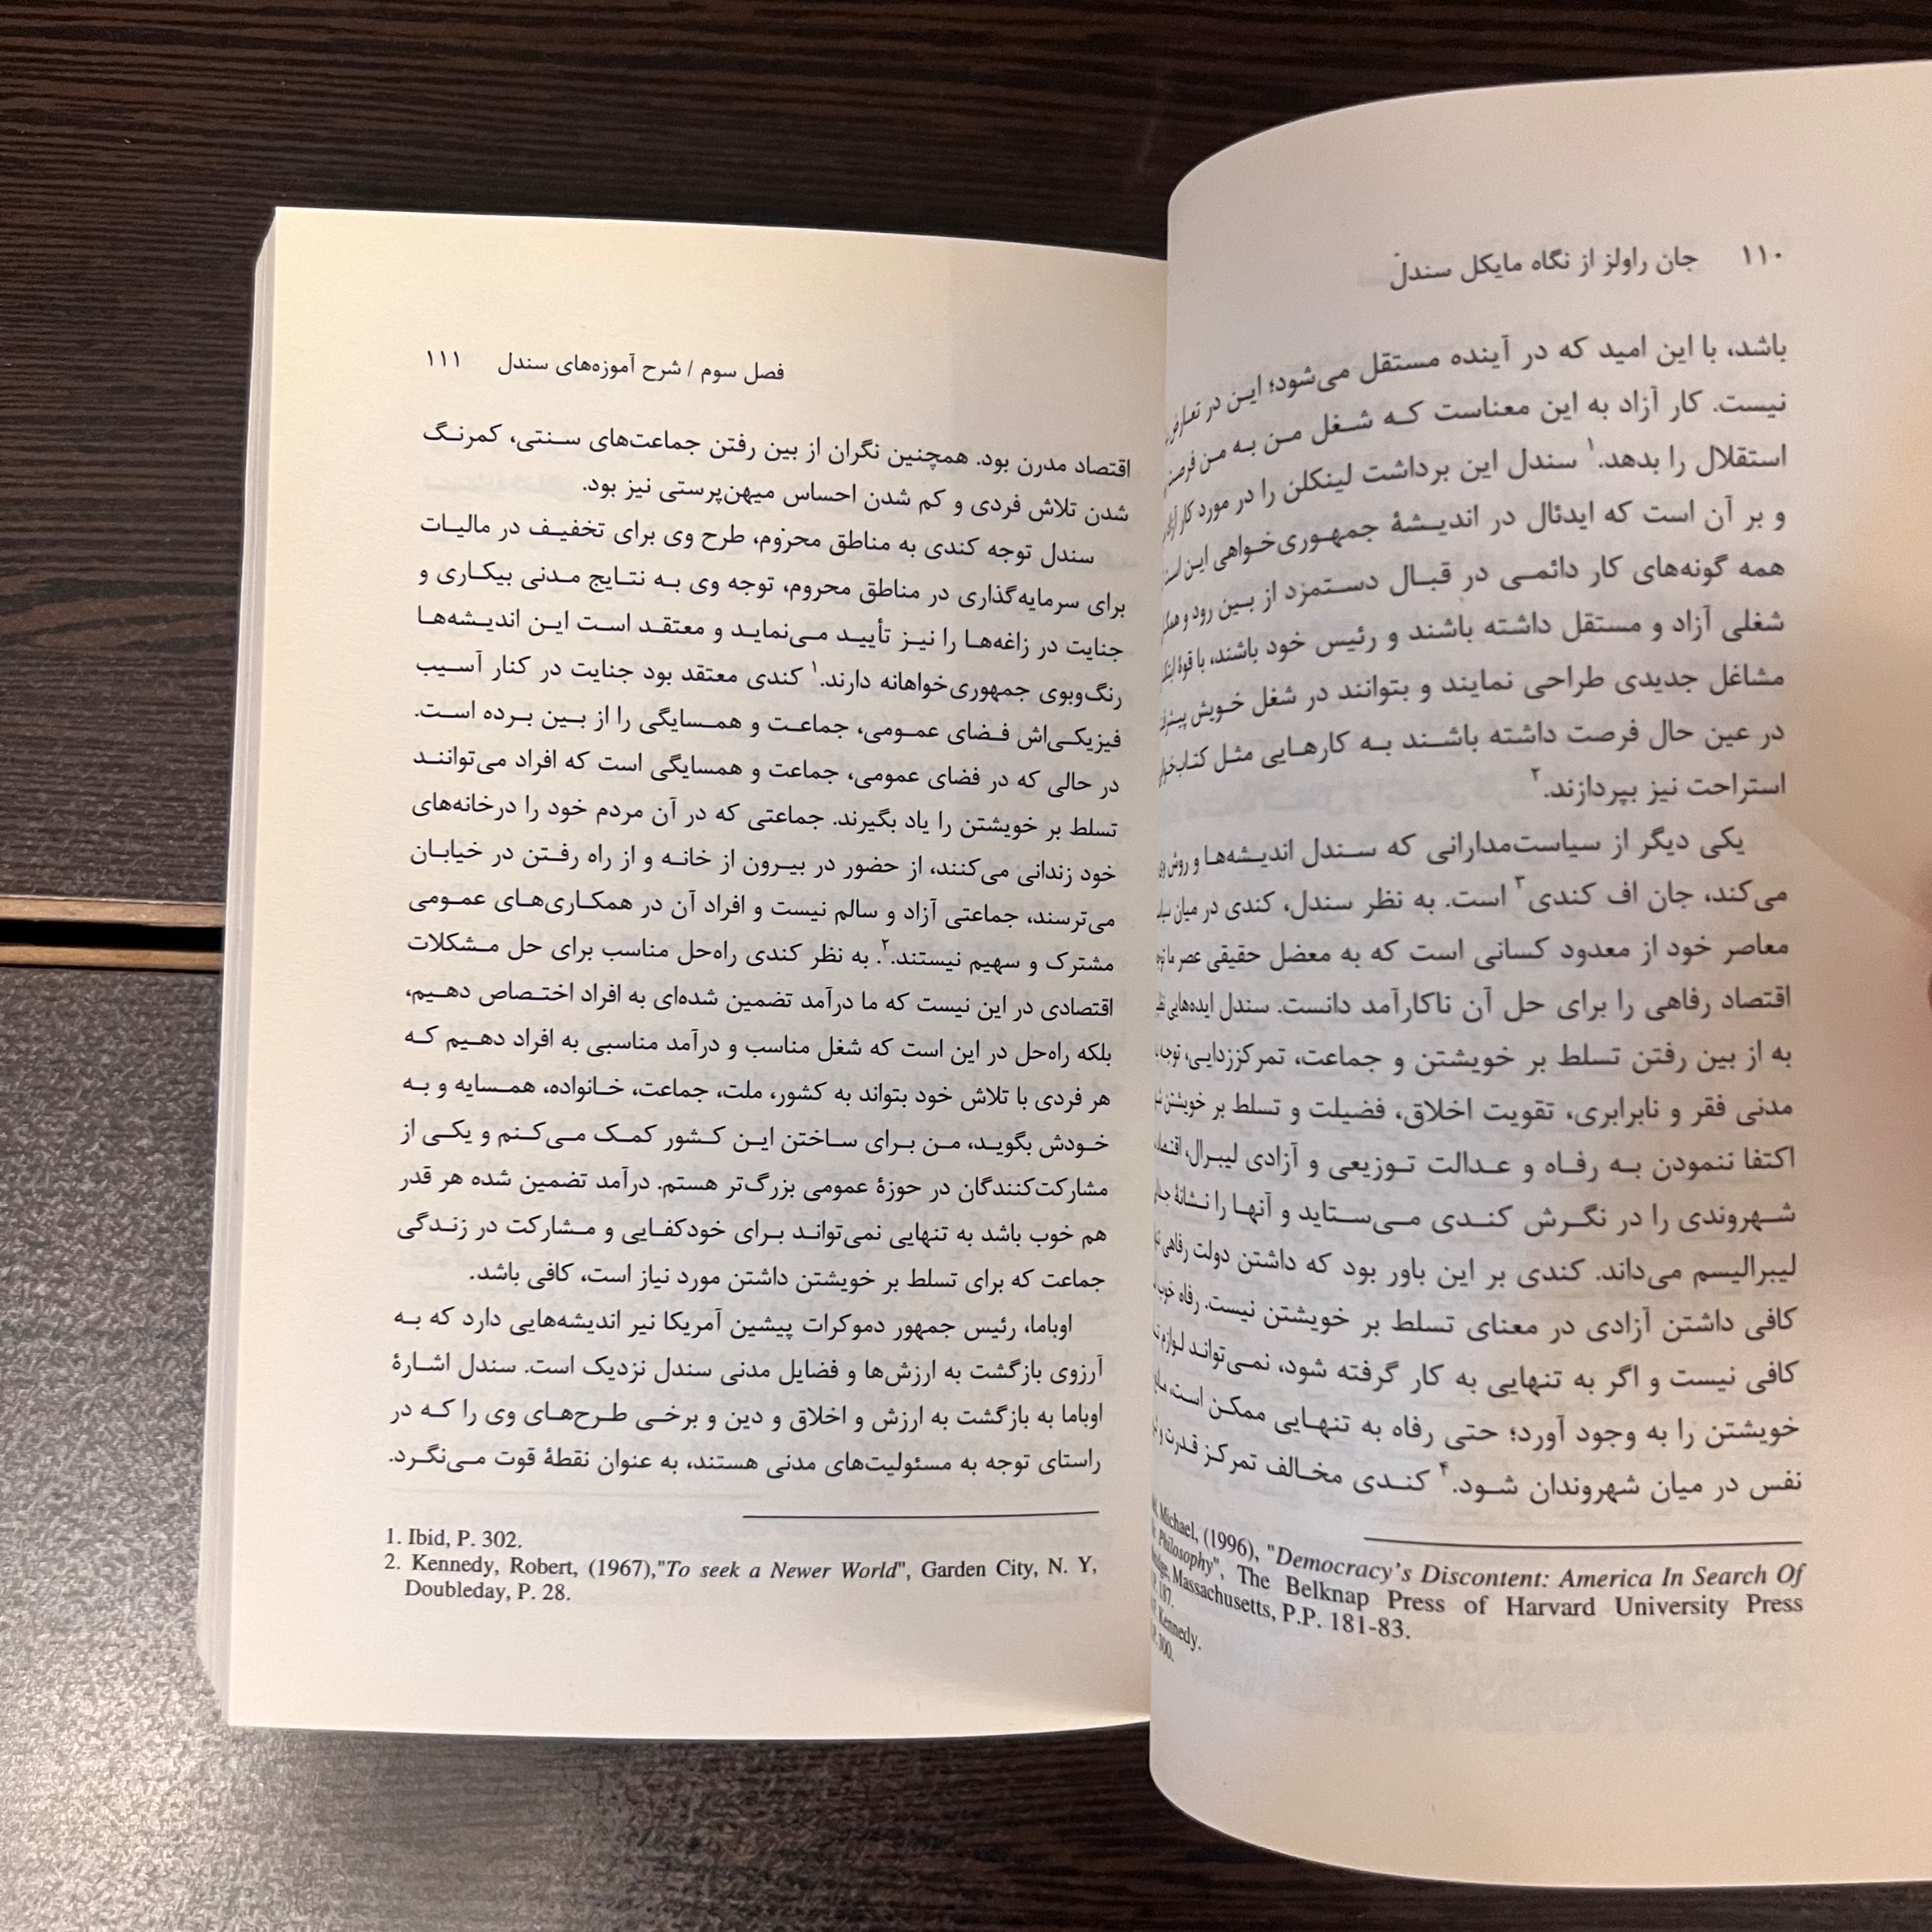 ۱۱۰ جان راولز از نگاه مایکل سندل
باشد، با این امید که در آینده مستقل می‌شود؛ این در تعارض
نیست. کار آزاد به این معناست که شغل من به من فرصت
استقلال را بدهد.۱ سندل این برداشت لینکلن را در مورد کار
و بر آن است که ایدئال در اندیشهٔ جمهوری‌خواهی این است
همه گونه‌های کار دائمی در قبال دستمزد از بین رود و
شغلی آزاد و مستقل داشته باشند و رئیس خود باشند، با قوهٔ
مشاغل جدیدی طراحی نمایند و بتوانند در شغل خویش
در عین حال فرصت داشته باشند به کارهایی مثل
استراحت نیز بپردازند.۲
یکی دیگر از سیاست‌مدارانی که سندل اندیشه‌ها و روش
می‌کند، جان اف کندی۳ است. به نظر سندل، کندی در میان
معاصر خود از معدود کسانی است که به معضل حقیقی عصر ما
اقتصاد رفاهی را برای حل آن ناکارآمد دانست. سندل ایده‌هایی
به از بین رفتن تسلط بر خویشتن و جماعت، تمرکززدایی، توجه
مدنی فقر و نابرابری، تقویت اخلاق، فضیلت و تسلط بر خویشتن
اکتفا ننمودن به رفاه و عدالت توزیعی و آزادی لیبرال،
شهروندی را در نگرش کندی می‌ستاید و آنها را نشانهٔ
لیبرالیسم می‌داند. کندی بر این باور بود که داشتن دولت رفاهی
کافی داشتن آزادی در معنای تسلط بر خویشتن نیست. رفاه خوب
کافی نیست و اگر به تنهایی به کار گرفته شود، نمی‌تواند لوازم
خویشتن را به وجود آورد؛ حتی رفاه به تنهایی ممکن است،
نفس در میان شهروندان شود.۴ کندی مخالف تمرکز قدرت و
Michael, (1996), "Democracy's Discontent: America In Search Of
Philosophy", The Belknap Press of Harvard University Press
Massachusetts, P.P. 181-83.
187.
Kennedy.
300.
فصل سوم / شرح آموزه‌های سندل ۱۱۱
اقتصاد مدرن بود. همچنین نگران از بین رفتن جماعت‌های سنتی، کمرنگ
شدن تلاش فردی و کم شدن احساس میهن‌پرستی نیز بود.
سندل توجه کندی به مناطق محروم، طرح وی برای تخفیف در مالیات
برای سرمایه‌گذاری در مناطق محروم، توجه وی به نتایج مدنی بیکاری و
جنایت در زاغه‌ها را نیز تأیید می‌نماید و معتقد است این اندیشه‌ها
رنگ‌وبوی جمهوری‌خواهانه دارند.۱ کندی معتقد بود جنایت در کنار آسیب
فیزیکی‌اش فضای عمومی، جماعت و همسایگی را از بین برده است.
در حالی که در فضای عمومی، جماعت و همسایگی است که افراد می‌توانند
تسلط بر خویشتن را یاد بگیرند. جماعتی که در آن مردم خود را درخانه‌های
خود زندانی می‌کنند، از حضور در بیرون از خانه و از راه رفتن در خیابان
می‌ترسند، جماعتی آزاد و سالم نیست و افراد آن در همکاری‌های عمومی
مشترک و سهیم نیستند.۲. به نظر کندی راه‌حل مناسب برای حل مشکلات
اقتصادی در این نیست که ما درآمد تضمین شده‌ای به افراد اختصاص دهیم،
بلکه راه‌حل در این است که شغل مناسب و درآمد مناسبی به افراد دهیم که
هر فردی با تلاش خود بتواند به کشور، ملت، جماعت، خانواده، همسایه و به
خودش بگوید، من برای ساختن این کشور کمک می‌کنم و یکی از
مشارکت‌کنندگان در حوزهٔ عمومی بزرگ‌تر هستم. درآمد تضمین شده هر قدر
هم خوب باشد به تنهایی نمی‌تواند برای خودکفایی و مشارکت در زندگی
جماعت که برای تسلط بر خویشتن داشتن مورد نیاز است، کافی باشد.
اوباما، رئیس جمهور دموکرات پیشین آمریکا نیر اندیشه‌هایی دارد که به
آرزوی بازگشت به ارزش‌ها و فضایل مدنی سندل نزدیک است. سندل اشارهٔ
اوباما به بازگشت به ارزش و اخلاق و دین و برخی طرح‌های وی را که در
راستای توجه به مسئولیت‌های مدنی هستند، به عنوان نقطهٔ قوت می‌نگرد.
1. Ibid, P. 302.
2. Kennedy, Robert, (1967),"To seek a Newer World", Garden City, N. Y,
Doubleday, P. 28.